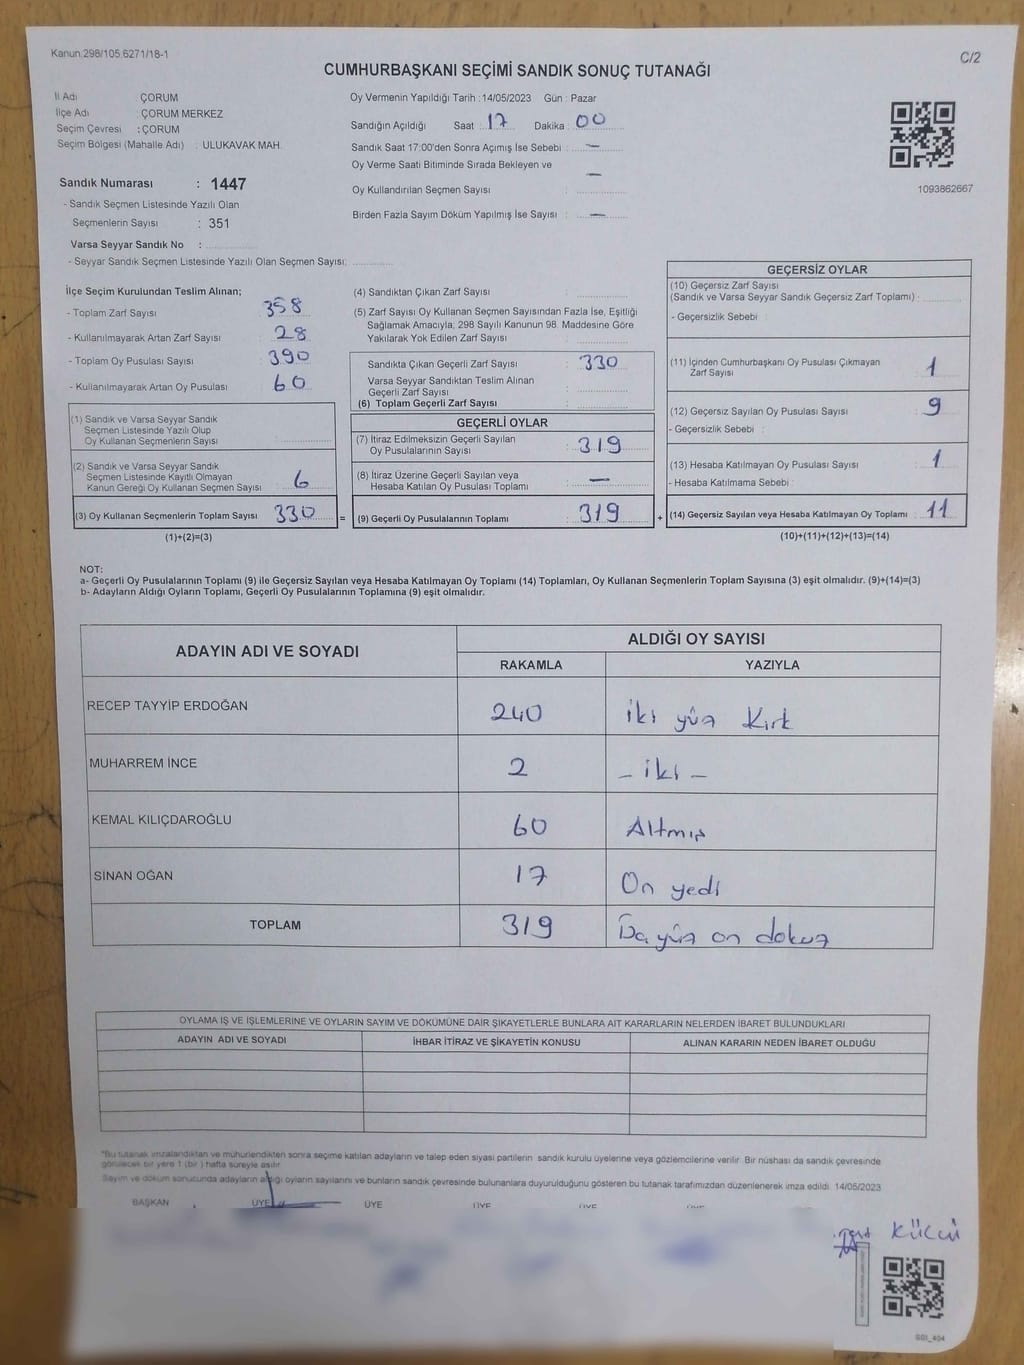 Kanun:298/105,6271/18-1
C/2
CUMHURBAŞKANI SEÇİMİ SANDIK SONUÇ TUTANAĞI
İl Adı ÇORUM
İlçe Adı : ÇORUM MERKEZ
Seçim Çevresi : ÇORUM
Seçim Bölgesi (Mahalle Adı) : ULUKAVAK MAH.
Sandık Numarası : 1447
- Sandık Seçmen Listesinde Yazılı Olan
Seçmenlerin Sayısı : 351
Varsa Seyyar Sandık No :
- Seyyar Sandık Seçmen Listesinde Yazılı Olan Seçmen Sayısı:
Oy Vermenin Yapıldığı Tarih :14/05/2023 Gün : Pazar
Sandığın Açıldığı Saat : 17 Dakika : 00
Sandık Saat 17:00'den Sonra Açımış İse Sebebi : —
Oy Verme Saati Bitiminde Sırada Bekleyen ve —
Oy Kullandırılan Seçmen Sayısı :
Birden Fazla Sayım Döküm Yapılmış İse Sayısı : —
1093862667
İlçe Seçim Kurulundan Teslim Alınan;
- Toplam Zarf Sayısı : 358
- Kullanılmayarak Artan Zarf Sayısı : 28
- Toplam Oy Pusulası Sayısı : 390
- Kullanılmayarak Artan Oy Pusulası : 60
(1) Sandık ve Varsa Seyyar Sandık
Seçmen Listesinde Yazılı Olup
Oy Kullanan Seçmenlerin Sayısı :
(2) Sandık ve Varsa Seyyar Sandık
Seçmen Listesinde Kayıtlı Olmayan
Kanun Gereği Oy Kullanan Seçmen Sayısı : 6
(3) Oy Kullanan Seçmenlerin Toplam Sayısı : 330
(1)+(2)=(3)
=
(4) Sandıktan Çıkan Zarf Sayısı :
(5) Zarf Sayısı Oy Kullanan Seçmen Sayısından Fazla İse, Eşitliği
Sağlamak Amacıyla; 298 Sayılı Kanunun 98. Maddesine Göre
Yakılarak Yok Edilen Zarf Sayısı :
Sandıkta Çıkan Geçerli Zarf Sayısı : 330
Varsa Seyyar Sandıktan Teslim Alınan
Geçerli Zarf Sayısı :
(6) Toplam Geçerli Zarf Sayısı :
GEÇERLİ OYLAR
(7) İtiraz Edilmeksizin Geçerli Sayılan
Oy Pusulalarının Sayısı : 319
(8) İtiraz Üzerine Geçerli Sayılan veya
Hesaba Katılan Oy Pusulası Toplamı : —
(9) Geçerli Oy Pusulalarının Toplamı : 319
+
GEÇERSİZ OYLAR
(10) Geçersiz Zarf Sayısı
(Sandık ve Varsa Seyyar Sandık Geçersiz Zarf Toplamı) :
- Geçersizlik Sebebi :
(11) İçinden Cumhurbaşkanı Oy Pusulası Çıkmayan
Zarf Sayısı : 1
(12) Geçersiz Sayılan Oy Pusulası Sayısı : 9
- Geçersizlik Sebebi :
(13) Hesaba Katılmayan Oy Pusulası Sayısı : 1
- Hesaba Katılmama Sebebi :
(14) Geçersiz Sayılan veya Hesaba Katılmayan Oy Toplamı : 11
(10)+(11)+(12)+(13)=(14)
NOT:
a- Geçerli Oy Pusulalarının Toplamı (9) ile Geçersiz Sayılan veya Hesaba Katılmayan Oy Toplamı (14) Toplamları, Oy Kullanan Seçmenlerin Toplam Sayısına (3) eşit olmalıdır. (9)+(14)=(3)
b- Adayların Aldığı Oyların Toplamı, Geçerli Oy Pusulalarının Toplamına (9) eşit olmalıdır.
ADAYIN ADI VE SOYADI ALDIĞI OY SAYISI
RAKAMLA YAZIYLA
RECEP TAYYİP ERDOĞAN 240 iki yüz kırk
MUHARREM İNCE 2 - iki -
KEMAL KILIÇDAROĞLU 60 Altmış
SİNAN OĞAN 17 On yedi
TOPLAM 319 yüz on dokuz
OYLAMA İŞ VE İŞLEMLERİNE VE OYLARIN SAYIM VE DÖKÜMÜNE DAİR ŞİKAYETLERLE BUNLARA AİT KARARLARIN NELERDEN İBARET BULUNDUKLARI
ADAYIN ADI VE SOYADI İHBAR İTİRAZ VE ŞİKAYETİN KONUSU ALINAN KARARIN NEDEN İBARET OLDUĞU
*Bu tutanak imzalandıktan ve mühürlendikten sonra seçime katılan adayların ve talep eden siyasi partilerin sandık kurulu üyelerine veya gözlemcilerine verilir. Bir nüshası da sandık çevresinde
görülecek bir yere 1 (bir) hafta süreyle asılır.
Sayım ve döküm sonucunda adayların aldığı oyların sayılarını ve bunların sandık çevresinde bulunanlara duyurulduğunu gösteren bu tutanak tarafımızdan düzenlenerek imza edildi. 14/05/2023
BAŞKAN ÜYE ÜYE ÜYE ÜYE ÜYE